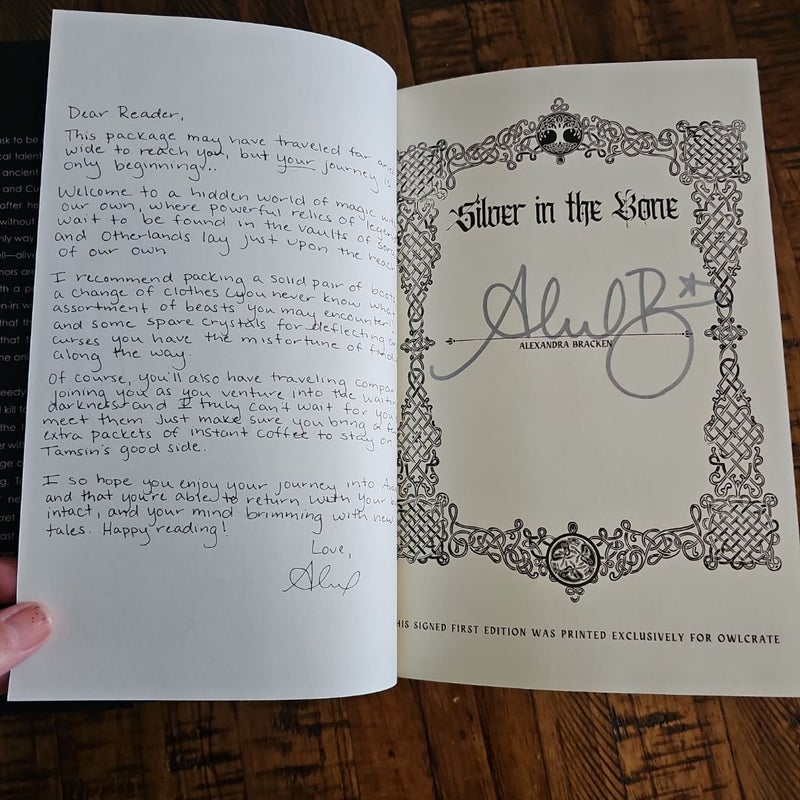 ask to be
cal talent
ancient
and Cu
after he
without
only way
ell—alive
nors are
n-in w
that th
that
he onl
eedy
kill to
the l
er wit
ge o
g. T
ne
cret
st
Dear Reader,
This package may have traveled far and
wide to reach you, but your journey is
only beginning...
Welcome to a hidden world of magic
our own, where powerful relics of legen
wait to be found in the vaults of
and Otherlands lay just upon the reach
of our own.
I recommend packing a solid pair of boots
a change of clothes (you never know what
assortment of beasts you may encounter
and some spare crystals for deflecting
curses you have the misfortune of
along the way.
Of course, you'll also have traveling compan
joining you as you venture into the
darkness—and I truly can't wait for you
meet them. Just make sure you bring a
extra packets of instant coffee to stay on
Tamsin's good side.
I so hope you enjoy your journey into
and that you're able to return with your
intact, and your mind brimming with new
tales. Happy reading!
Love,
Alex
Silver in the Bone
Alex B
ALEXANDRA BRACKEN
HIS SIGNED FIRST EDITION WAS PRINTED EXCLUSIVELY FOR OWLCRATE